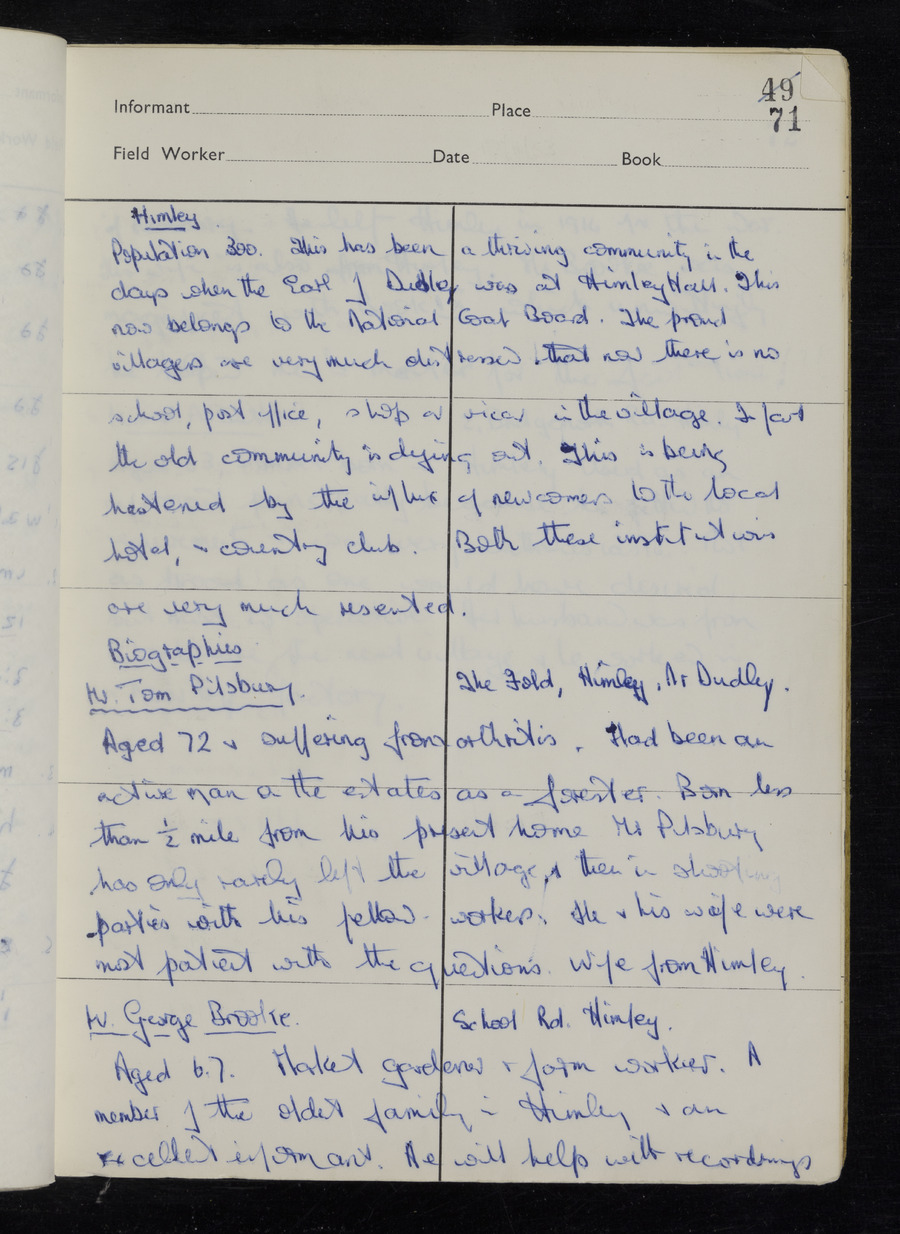 49
Informant Place
71
Field Worker Date Book
Himley
Population 300. This has been a thriving community in the
days when the Earl of Dudley was at Himley Hall. This
now belongs to the National Coal Board. The proud
villagers are very much distressed that now there is no
school, post office, shop or vicar in the village. In fact
the old community is dying out. This is being
hastened by the influx of newcomers to the local
hotel, & country club. Both these institutions
are very much resented.
Biographies
Mr. Tom Pilsbury. The Fold, Himley, Nr Dudley.
Aged 72 & suffering from arthritis. Had been an
active man on the estates as a forester. Born less
than ½ mile from his present home Mr Pilsbury
has only rarely left the village, & then in shooting
parties with his fellow-workers. He & his wife were
most patient with the questions. Wife from Himley.
Mr. George Brooke. School Rd. Himley.
Aged 67. Market gardener & farm worker. A
member of the oldest family in Himley & an
excellent informant. He will help with recordings